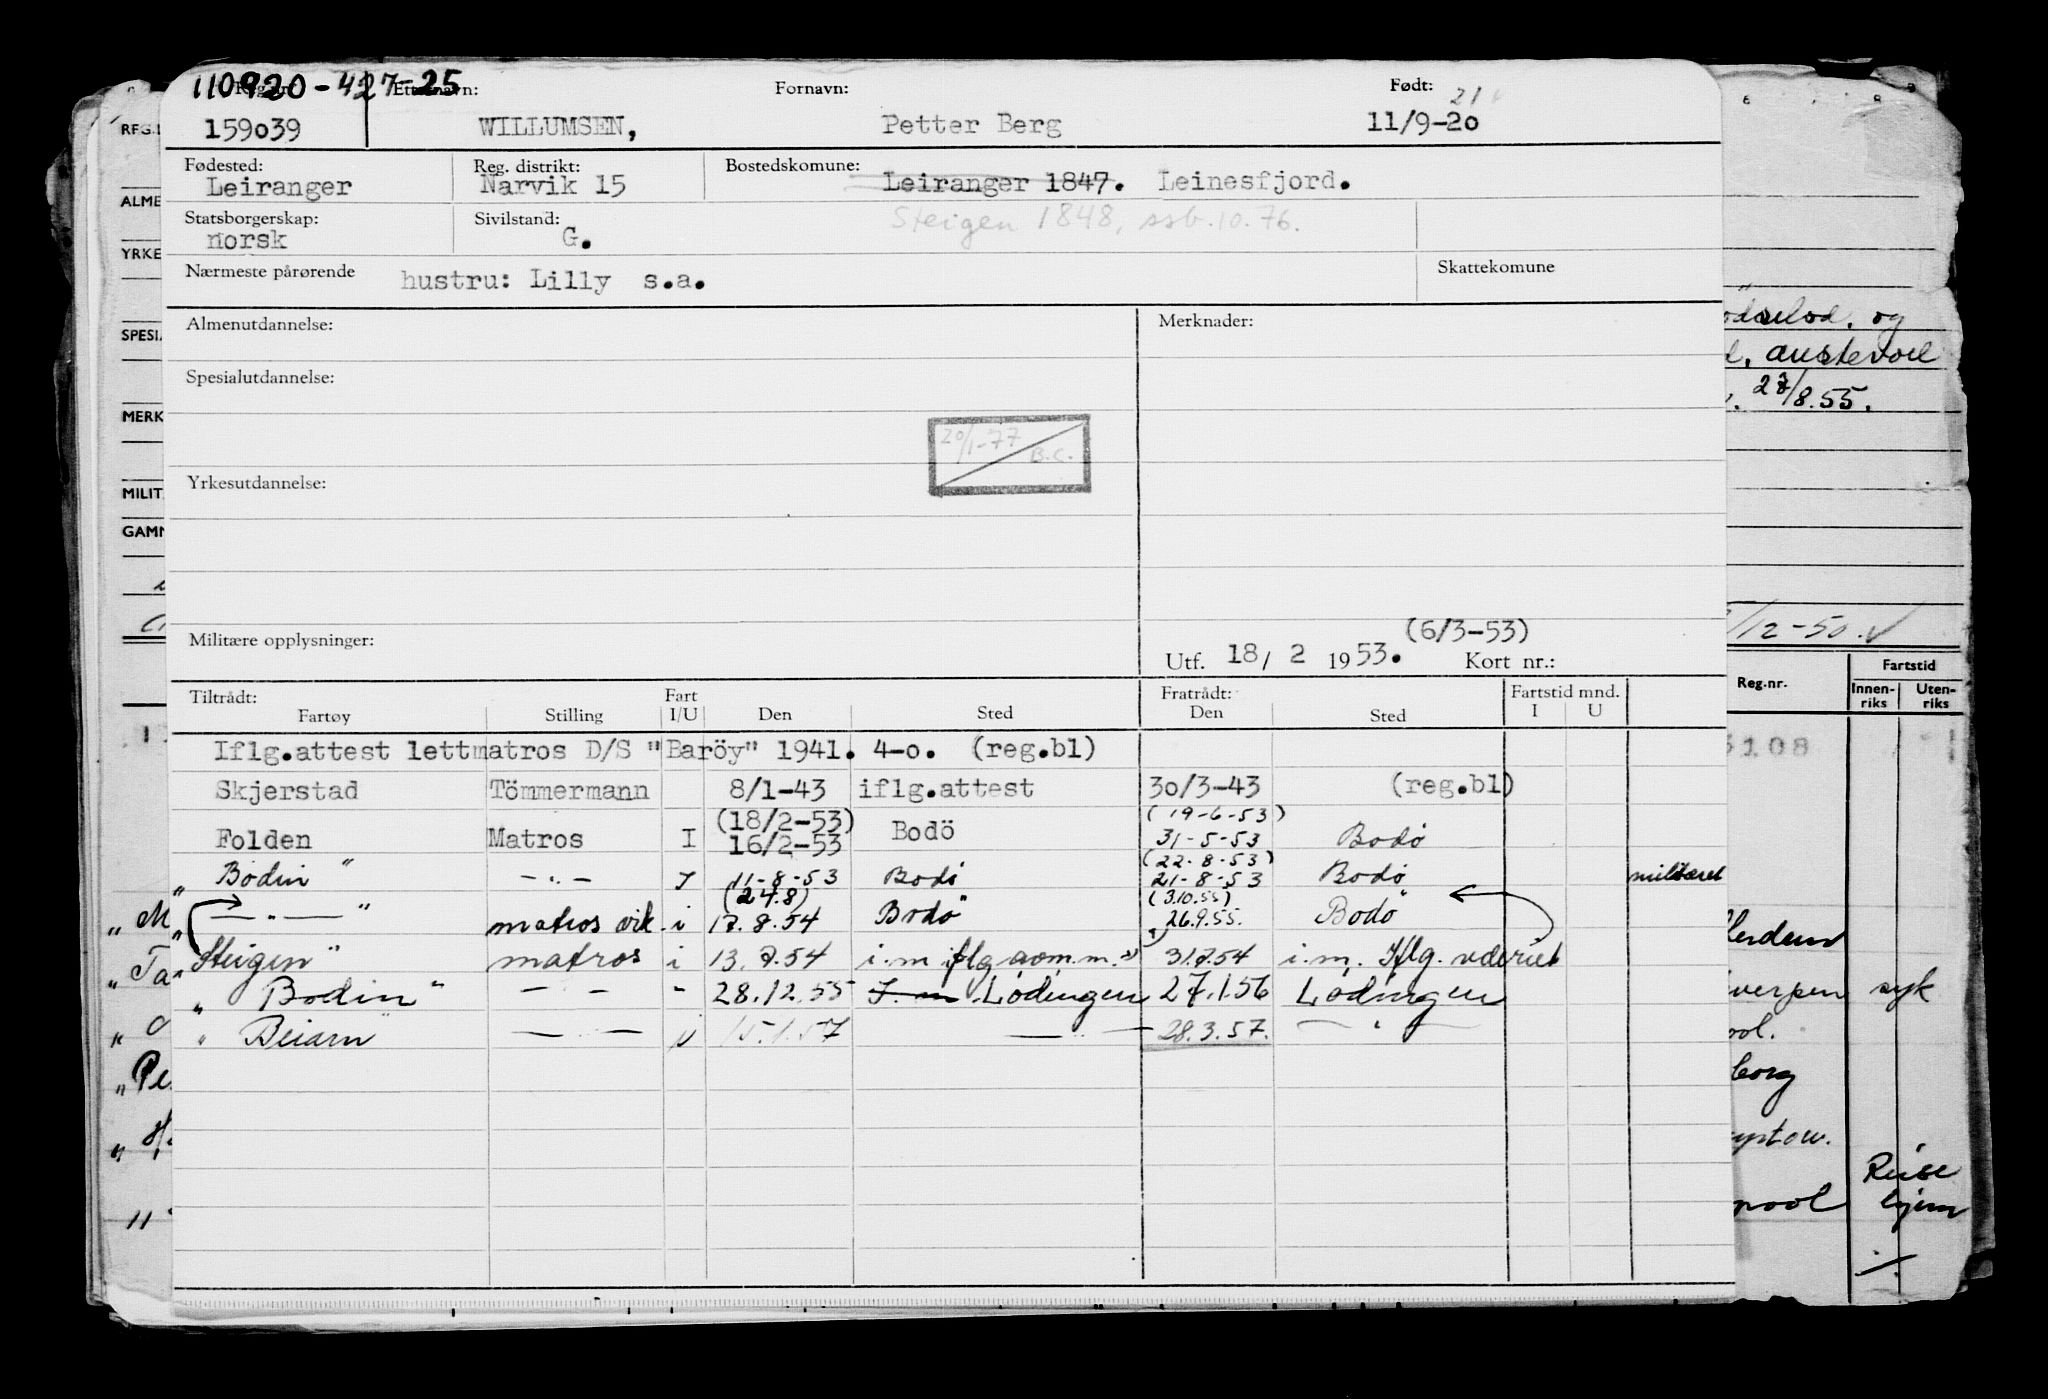 110920-427-25
Reg.nr. Etternavn: Fornavn: Født:
159039 WILLUMSEN, Petter Berg 11/9-20
21
Fødested: Reg. distrikt: Bostedskomune:
Leiranger Narvik 15 Leiranger 1847. Leinesfjord.
Statsborgerskap: Sivilstand: Steigen 1848, ssb.10.76.
norsk G.
Nærmeste pårørende hustru: Lilly s.a. Skattekomune
Almenutdannelse: Merknader:
Spesialutdannelse:
20/1-77 B.C.
Yrkesutdannelse:
Militære opplysninger: (6/3-53)
Utf. 18/ 2 1953. Kort nr.:
Tiltrådt: Fart Fratrådt: Fartstid mnd.
Fartøy Stilling I/U Den Sted Den Sted I U
Iflg.attest lettmatros D/S "Baröy" 1941. 4-o. (reg.bl)
Skjerstad Tömmermann 8/1-43 iflg.attest 30/3-43 (reg.bl)
(18/2-53) (19-6-53)
Folden Matros I 16/2-53 Bodö 31-5-53 Bodö
(22-8-53)
" Bodin " -"- I 11-8-53 Bodö 21-8-53 Bodö militæret
(24.8) (3.10.55)
" —"— " matros vik. i 17.8.54 Bodö 26.9.55. Bodö
Steigen " matros i 13.7.54 i.m. iflg 31.7.54 i.m. Iflg.
" Bodin " — " — " 28.12.55 I. m. Lödingen 27.1.56 Lödingen
" Beiarn " — " — i 15.1.57 — " — 28.3.57. — " —
REG.
ALME
YRKE
SPESIA
MERK
MILIT
GAMN
og
austevoll
27/8.55.
/12-50.
Reg.nr. Fartstid
Innen-riks Uten-riks
5108
"M
"Ta
"Pe
verpen syk
ool.
borg
Reise
pool hjem